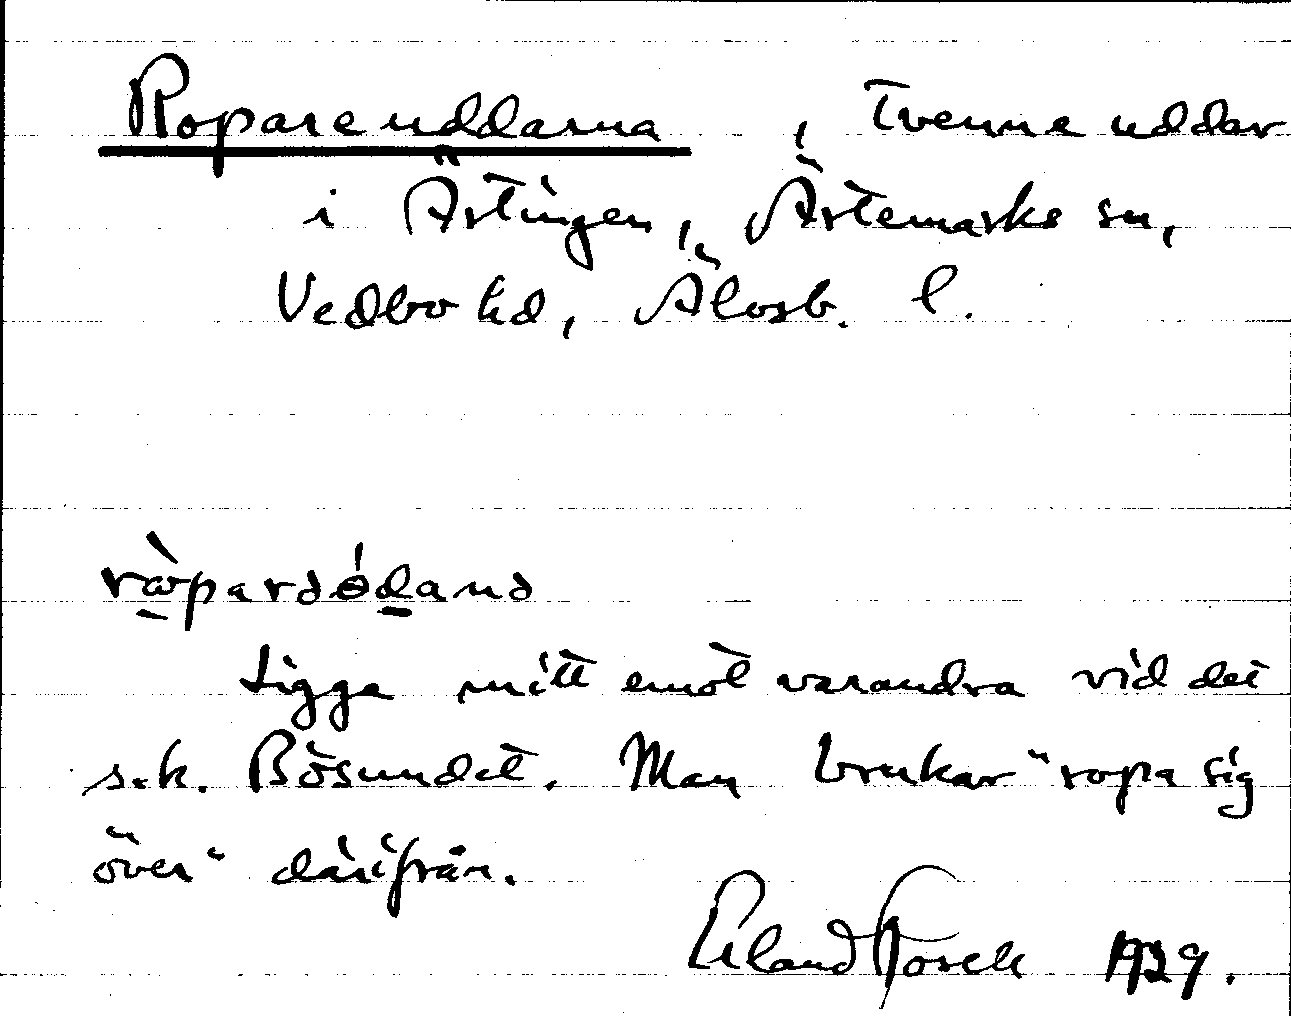 Ropareuddarna, Tvenne uddar
i Ärtingen, Ärtemarks sn,
Vedbo hd, Älvsb. l.
Ligga mitt emot varandra vid det
s.k. Bösundet. Man brukar "ropa sig
över" därifrån.
Erland Rosell 1929.